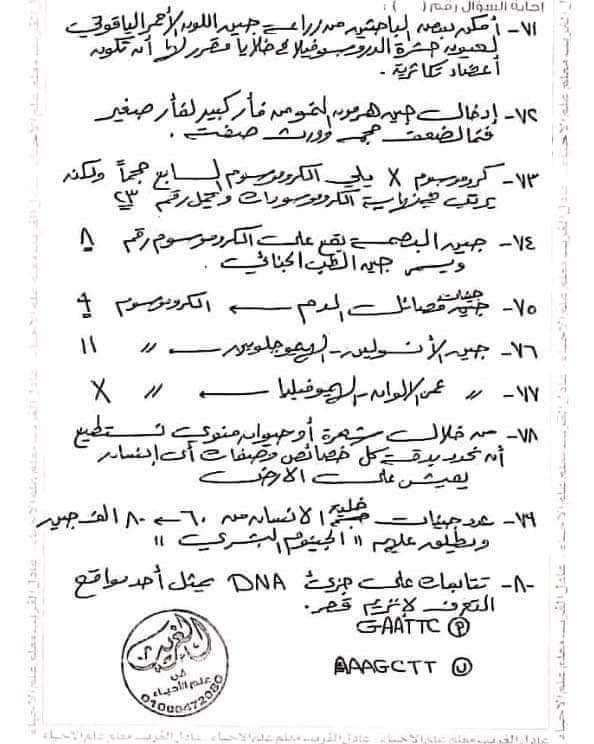 إجابة السؤال رقم ( ) :
٧١- أمكن لبعض الباحثين من زراعى جين اللون الأحمر الياقوتي
لعيون حشرة الدروسوفيلا فى خلايا مقرر لها أن تكون
أعضاء تكاثرية .
٧٢- إدخال جين هرمون النمو من فأر كبير لفأر صغير
فنما لضعف حجمه وورث صفته .
٧٣- كروموسوم X يلي الكروموسوم السابع حجماً ولكنه
يرتب فى نهاية الكروموسومات ويحمل رقم ٢٣
٧٤- جين البصمه يقع على الكروموسوم رقم ٨
ويسمى جين الطب الجنائي .
٧٥- جينات فصائل الدم ← الكروموسوم ٩
٧٦- جين الأنسولين - الهيموجلوبين ← 〃 ١١
٧٧- 〃 عمى الالوان - الهيموفيليا ← 〃 X
٧٨- من خلال شعرة أو حيوان منوي نستطيع
أن نحدد بدقه كل خصائص وصفات أى إنسان
يعيش على الارض
٧٩- عدد جينات خلية الانسان من ٦٠ ← ٨٠ الف جين
ويطلق عليهم " الجينوم البشري "
٨٠- تتابعات على جزئ DNA يمثل أحد مواقع
التعرف لإنزيم قصر .
GAATTC (P)
AAAGCTT (ب)
الغريب
فى
علم الأحياء
01088472080
عادل الغريب معلم علم الاحياء